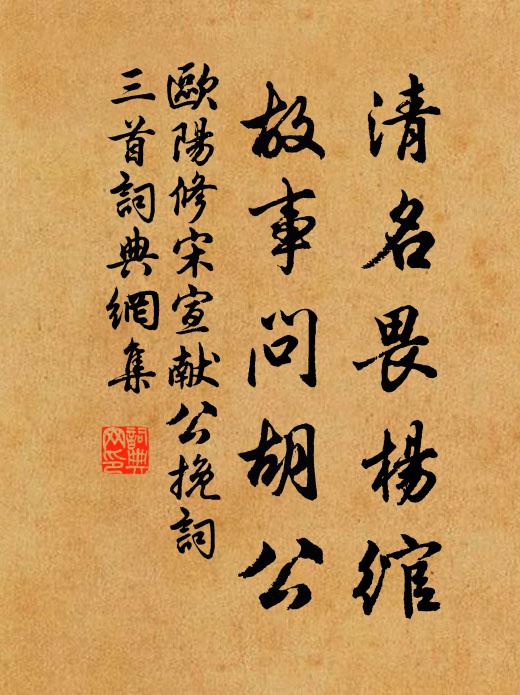 清名畏楊綰
故事問胡公
歐陽修宋宣献公挽詞
三首詞典網集
詞典
网印